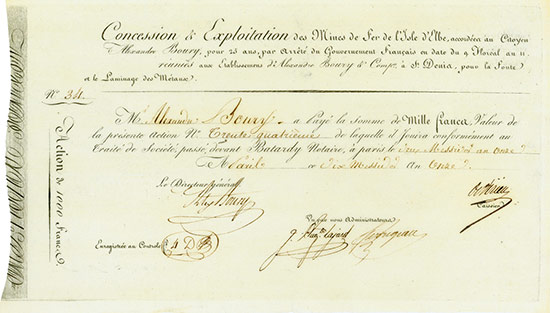 Concession & Exploitation des Mines de Fer de l'Isle d'Elbe, accordées au Citoyen
Alexandre Boury, pour 25 ans, par Arrêté du Gouvernement Français en date du 9 Floréal an 11.
réunies aux Etablissemens d'Alexandre Boury & Comp.e à St Denis, pour la Fonte
et le Laminage des Métaux.
No 34.
Mr. Alexandre Boury a Payé la Somme de Mille francs, Valeur de
la présente Action No Trente quatrième de laquelle il Jouira conformément au
Traité de Société, passé devant Batardy Notaire, à paris le Messidor an onze
A Paris ce Dix Messidor An Onze
Le Directeur Général
Alex Boury
Caissier
Vu par nous Administrateurs
Enregistrée au Contrôle
Action de 1000 Francs